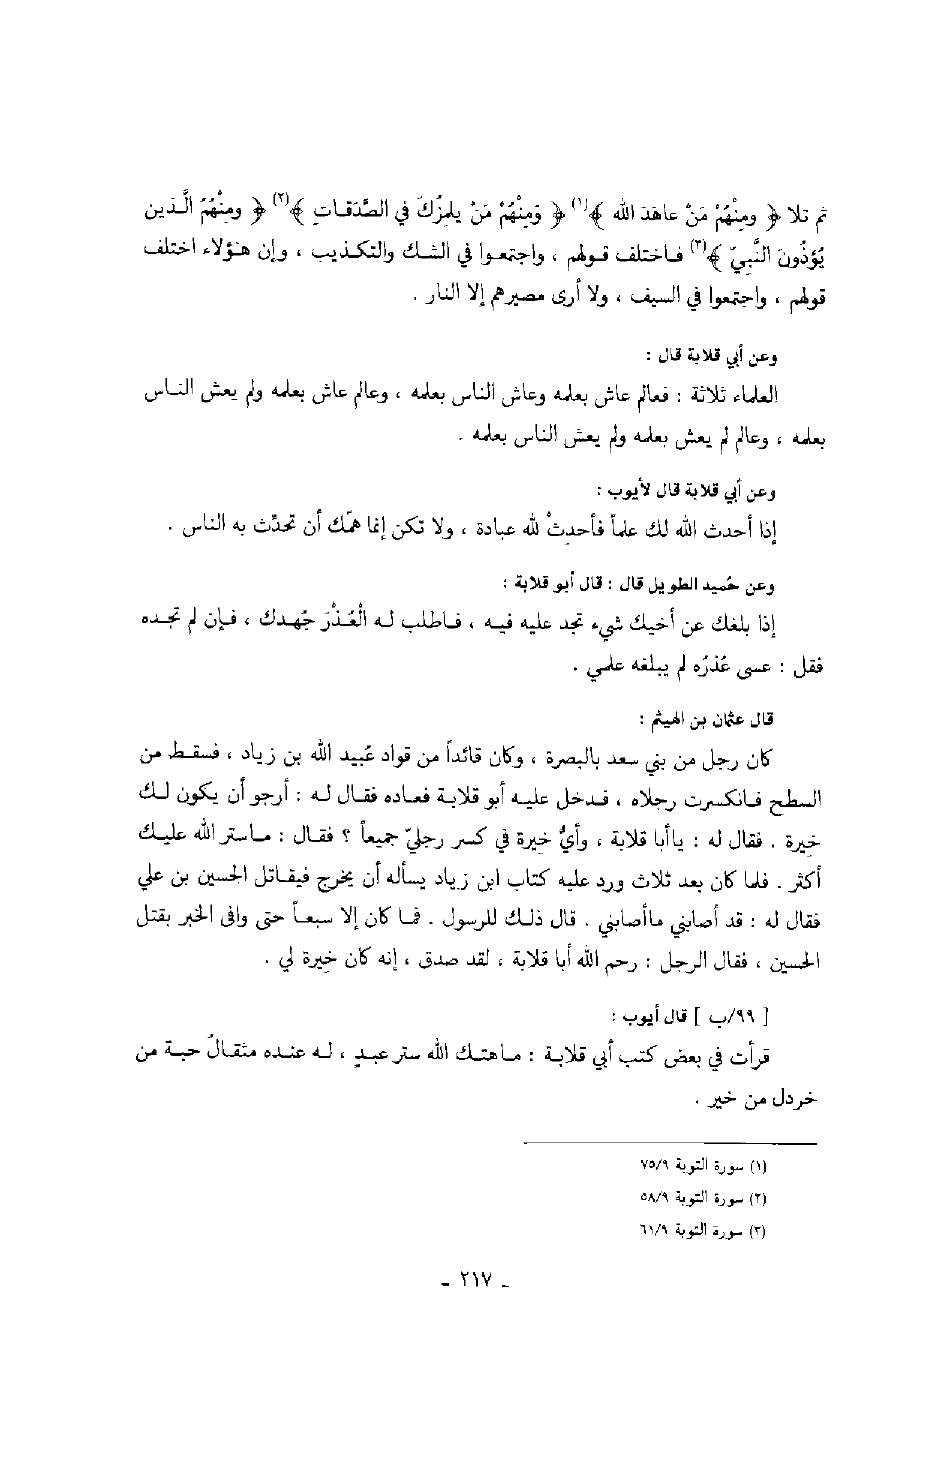 ثم تلا ﴿ ومِنْهُمْ مَنْ عاهَدَ الله ﴾(١) ﴿ وَمِنْهُمْ مَنْ يلمِزُكَ في الصَّدَقاتِ ﴾(٢) ﴿ ومِنْهُمُ الَّذين
يُؤذُونَ النَّبيّ ﴾(٣) فاختلف قولهم ، واجتمعوا في الشك والتكذيب ، وإن هؤلاء اختلف
قولهم ، واجتمعوا في السيف ، ولا أرى مصيرهم إلا النار .
وعن أبي قلابة قال :
العلماء ثلاثة : فعالم عاش بعلمه وعاش الناس بعلمه ، وعالم عاش بعلمه ولم يعش الناس
بعلمه ، وعالم لم يعش بعلمه ولم يعش الناس بعلمه .
وعن أبي قلابة قال لأيوب :
إذا أحدث الله لك علماً فأحدِثْ لله عبادة ، ولا تكن إنما همّك أن تحدِّث به الناس .
وعن حُميد الطويل قال : قال أبو قلابة :
إذا بلغك عن أخيك شيء تجد عليه فيه ، فاطلب له الْعُذْرَ جُهدك ، فإن لم تجده
فقل : عسى عُذرُه لم يبلغه علمي .
قال عثمان بن الهيثم :
كان رجل من بني سعد بالبصرة ، وكان قائداً من قواد عُبيد الله بن زياد ، فسقط من
السطح فانكسرت رجلاه ، فدخل عليه أبو قلابة فعاده فقال له : أرجو أن يكون لك
خِيرة . فقال له : ياأبا قلابة ، وأيُّ خِيرة في كسر رجليّ جميعاً ؟ فقال : ماستر الله عليك
أكثر . فلما كان بعد ثلاث ورد عليه كتاب ابن زياد يسأله أن يخرج فيقاتل الحسين بن علي
فقال له : قد أصابني ماأصابني . قال ذلك للرسول . فما كان إلا سبعاً حتى وافى الخبر بقتل
الحسين ، فقال الرجل : رحم الله أبا قلابة ، لقد صدق ، إنه كان خِيرة لي .
[ ٩٩/ب ] قال أيوب :
قرأت في بعض كتب أبي قلابة : ماهتك الله ستر عبدٍ ، له عنده مثقالُ حبة من
خردل من خير .
(١) سورة التوبة ٧٥/٩
(٢) سورة التوبة ٥٨/٩
(٣) سورة التوبة ٦١/٩
- ٢١٧ -